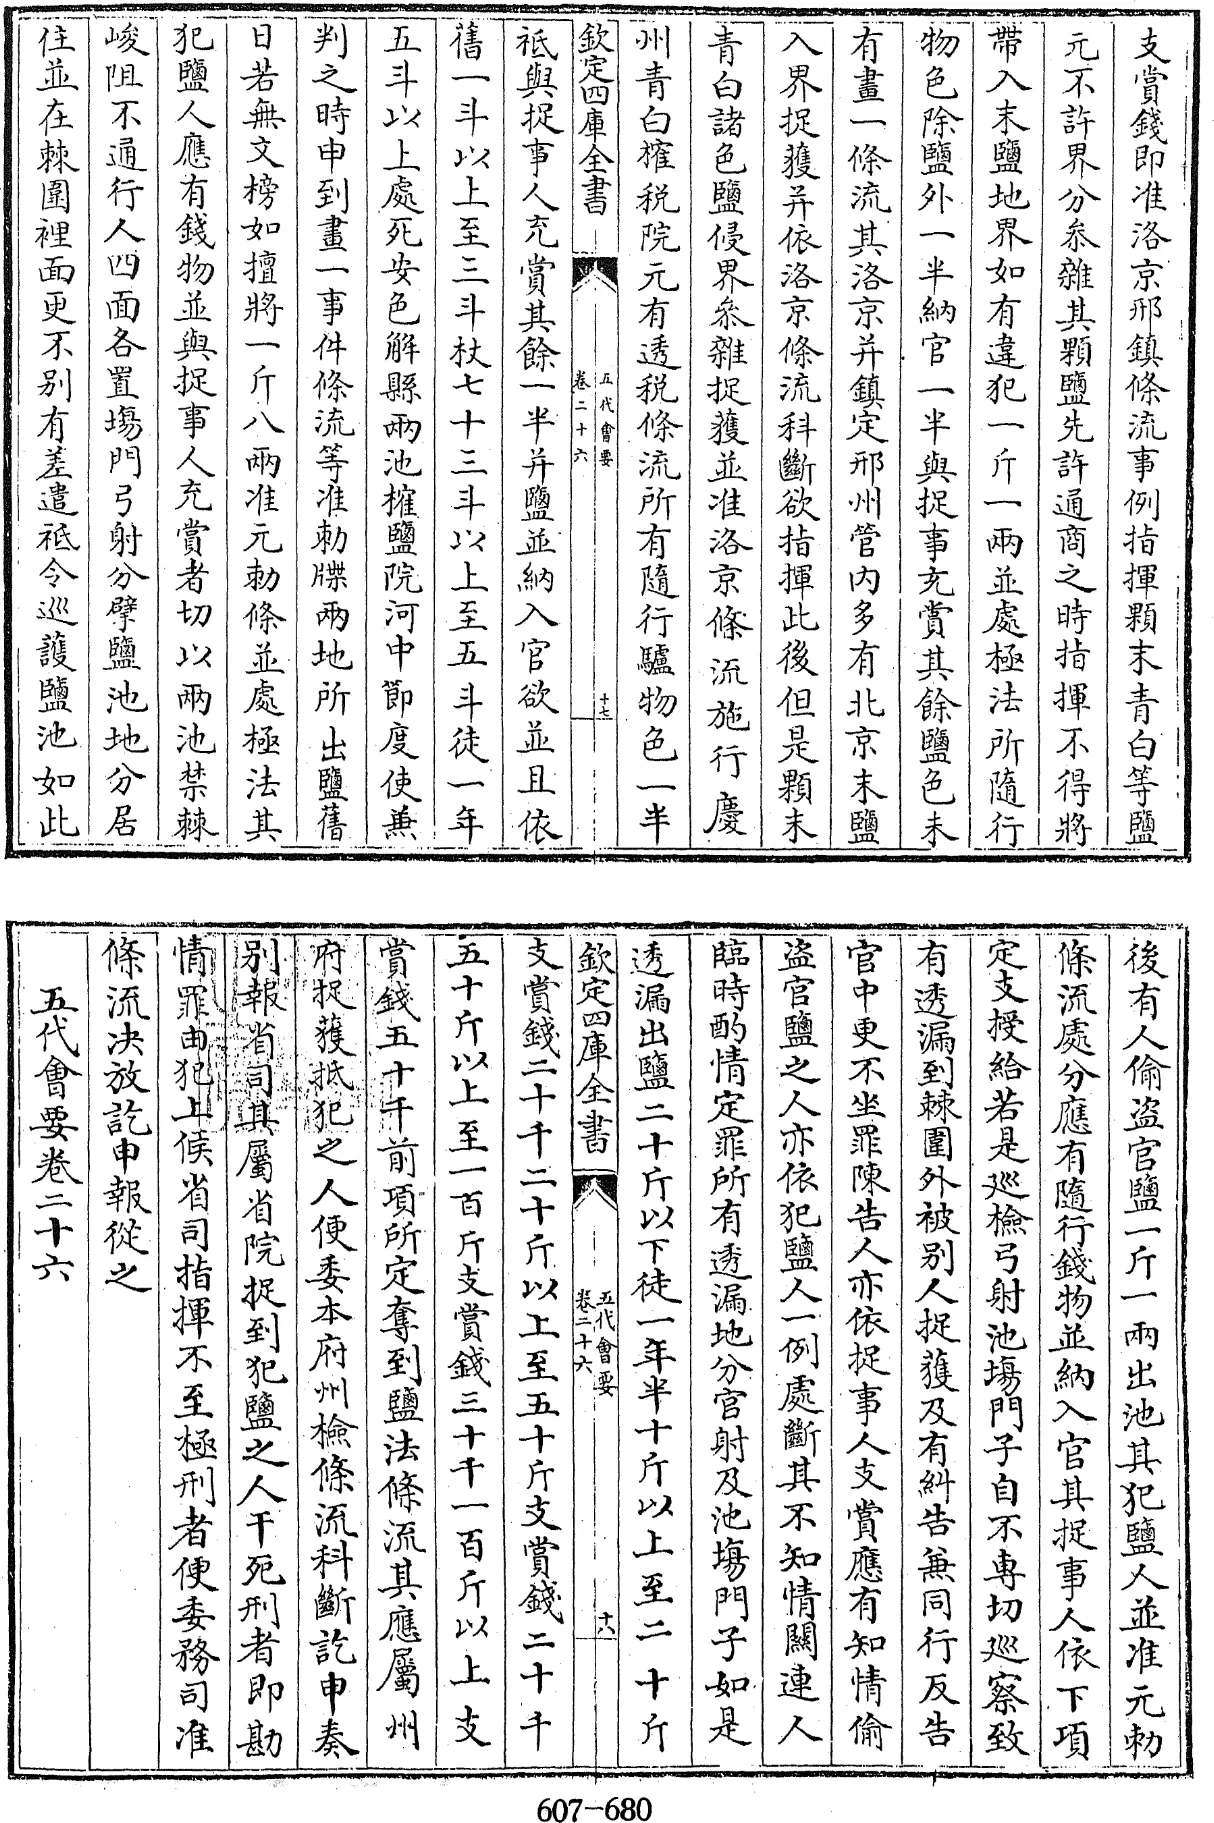 支賞錢即准洛京邢鎮條流事例指揮顆末青白等鹽
元不許界分叅雜其顆鹽先許通商之時指揮不得將
帶入末鹽地界如有違犯一斤一兩並處極法所隨行
物色除鹽外一半納官一半與捉事充賞其餘鹽色未
有畫一條流其洛京并鎮定邢州管内多有北京末鹽
入界捉獲并依洛京條流科斷欲指揮此後但是顆末
青白諸色鹽侵界叅雜捉獲並准洛京條流施行慶
州青白榷税院元有透税條流所有隨行驢物色一半
欽定四庫全書
五代會要
卷二十六
十七
祗與捉事人充賞其餘一半并鹽並納入官欲並且依
舊一斗以上至三斗杖七十三斗以上至五斗徒一年
五斗以上處死安色解縣兩池榷鹽院河中節度使兼
判之時申到畫一事件條流等准勅牒兩地所出鹽舊
日若無文榜如擅將一斤八兩准元勅條並處極法其
犯鹽人應有錢物並與捉事人充賞者切以兩池禁棘
峻阻不通行人四面各置塲門弓射分擘鹽池地分居
住並在棘圍裡面更不别有差遣祗令巡護鹽池如此
後有人偷盜官鹽一斤一兩出池其犯鹽人並准元勅
條流處分應有隨行錢物並納入官其捉事人依下項
定支授給若是巡檢弓射池塲門子自不專切巡察致
有透漏到棘圍外被别人捉獲及有糾告兼同行反告
官中更不坐罪陳告人亦依捉事人支賞應有知情偷
盜官鹽之人亦依犯鹽人一例處斷其不知情關連人
臨時酌情定罪所有透漏地分官射及池塲門子如是
透漏出鹽二十斤以下徒一年半十斤以上至二十斤
欽定四庫全書
五代會要
卷二十六
十八
支賞錢二十千二十斤以上至五十斤支賞錢二十千
五十斤以上至一百斤支賞錢三十千一百斤以上支
賞錢五十千前項所定奪到鹽法條流其應屬州
府捉獲抵犯之人便委本府州檢條流科斷訖申奏
别報省司其屬省院捉到犯鹽之人干死刑者即勘
情罪由犯上候省司指揮不至極刑者便委務司准
條流決放訖申報從之
五代會要卷二十六
607-680